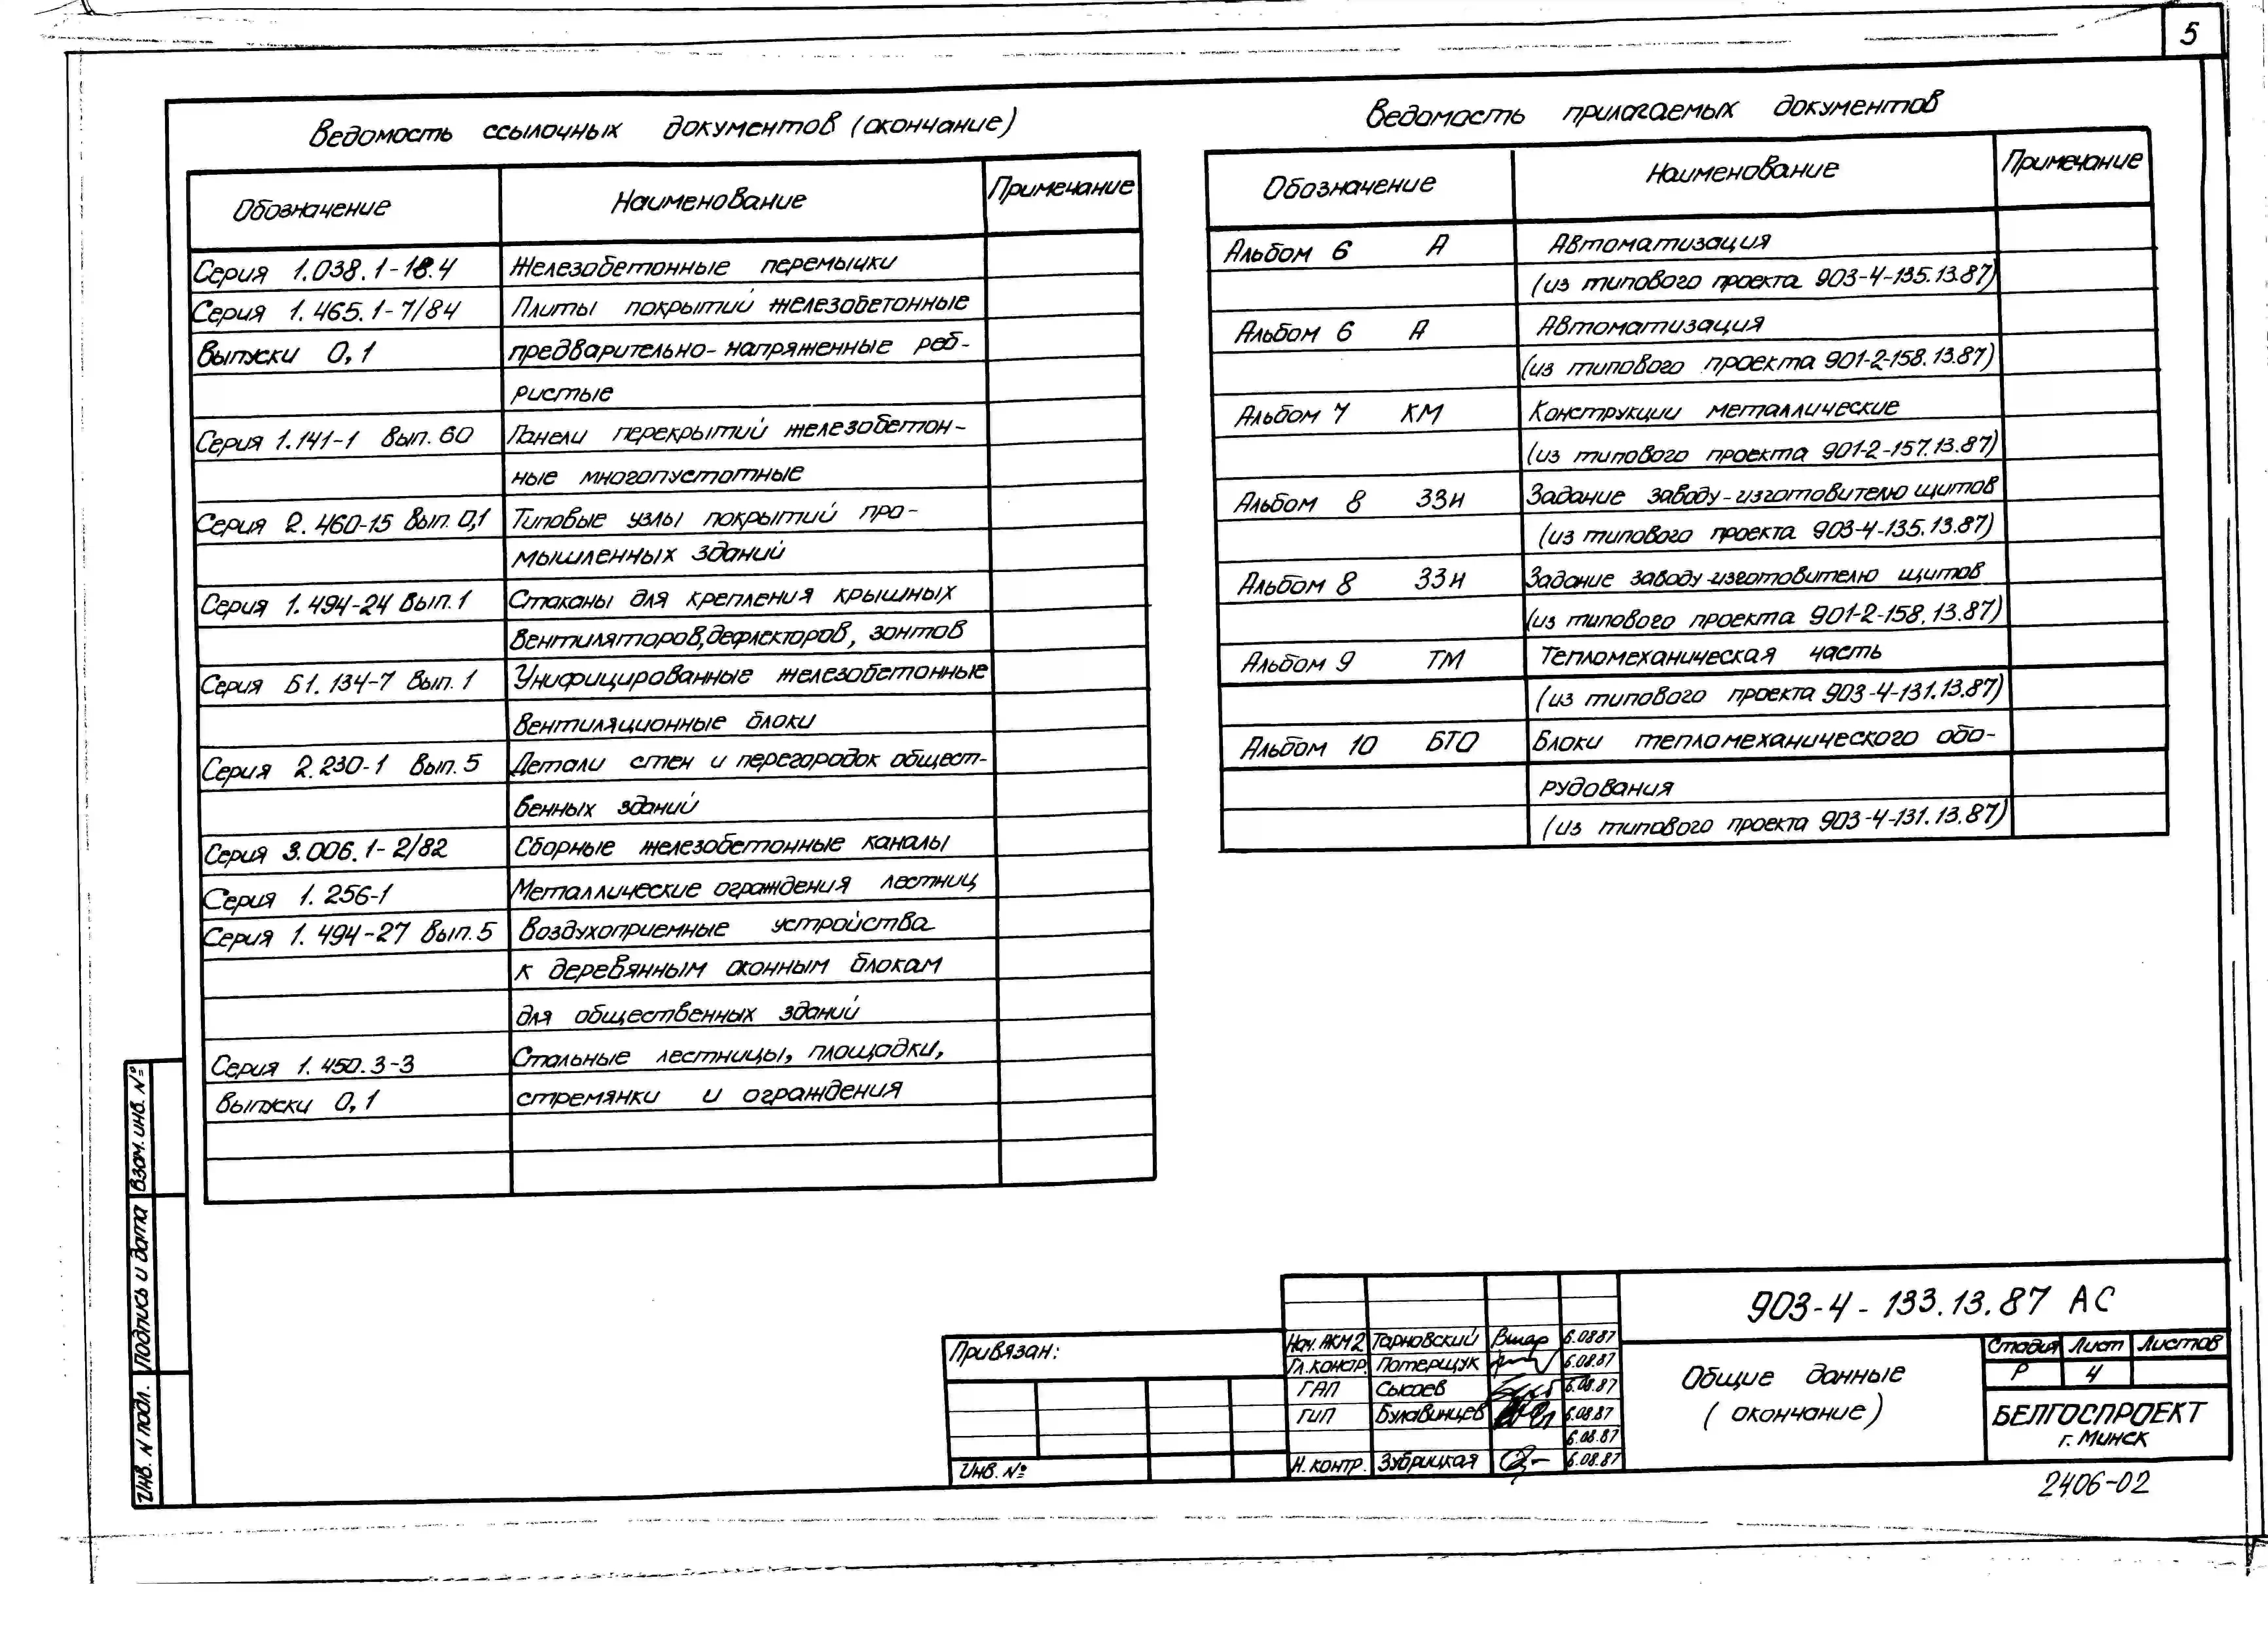 5
Ведомость ссылочных документов (окончание)
Обозначение Наименование Примечание
Серия 1.038.1-18.4 Железобетонные перемычки
Серия 1.465.1-7/84 Плиты покрытий железобетонные
Выпуски 0,1 предварительно-напряженные реб-
ристые
Серия 1.141-1 вып. 60 Панели перекрытий железобетон-
ные многопустотные
Серия 2.460-15 вып. 0,1 Типовые узлы покрытий про-
мышленных зданий
Серия 1.494-24 вып. 1 Стаканы для крепления крышных
вентиляторов, дефлекторов, зонтов
Серия Б1.134-7 вып. 1 Унифицированные железобетонные
вентиляционные блоки
Серия 2.230-1 вып. 5 Детали стен и перегородок общест-
венных зданий
Серия 3.006.1-2/82 Сборные железобетонные каналы
Серия 1.256-1 Металлические ограждения лестниц
Серия 1.494-27 вып. 5 Воздухоприемные устройства
к деревянным оконным блокам
для общественных зданий
Серия 1.450.3-3 Стальные лестницы, площадки,
выпуски 0,1 стремянки и ограждения
Ведомость прилагаемых документов
Обозначение Наименование Примечание
Альбом 6 А Автоматизация
(из типового проекта 903-4-135.13.87)
Альбом 6 А Автоматизация
(из типового проекта 901-2-158.13.87)
Альбом 7 КМ Конструкции металлические
(из типового проекта 901-2-157.13.87)
Альбом 8 ЗЗИ Задание заводу-изготовителю щитов
(из типового проекта 903-4-135.13.87)
Альбом 8 ЗЗИ Задание заводу-изготовителю щитов
(из типового проекта 901-2-158.13.87)
Альбом 9 ТМ Тепломеханическая часть
(из типового проекта 903-4-131.13.87)
Альбом 10 БТО Блоки тепломеханического обо-
рудования
(из типового проекта 903-4-131.13.87)
Взам. инв. №
Подпись и дата
Инв. N подл.
Привязан:
Инв. №
Нач. АКМ2 Тарновский 6.08.87
Гл. констр. Потерщук 6.08.87
ГАП Сысоев 6.08.87
ГИП Булавинцев 6.08.87
6.08.87
Н. контр. Зубрицкая 6.08.87
903-4-133.13.87 АС
Общие данные
(окончание)
Стадия Лист Листов
Р 4
БЕЛГОСПРОЕКТ
г. Минск
2406-02